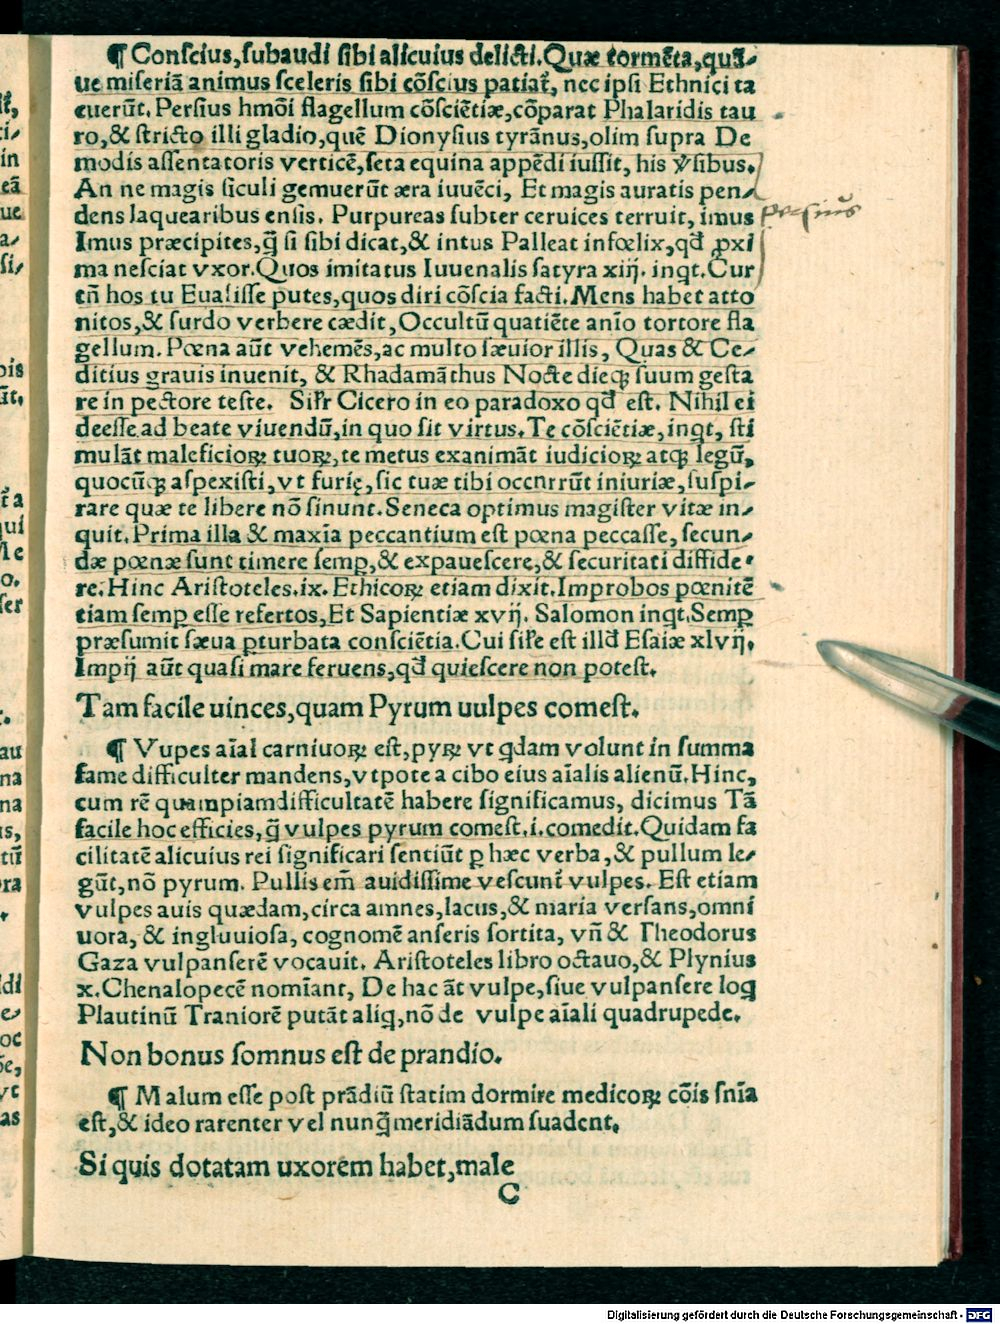 ¶ Conſcius, ſubaudi ſibi alicuius delicti. Quæ tormēta, quā⸗
ue miſeriā animus ſceleris ſibi cōſcius patiat᷑, nec ipſi Ethnici ta
cuerūt. Perſius hmōi flagellum cōſciētiæ, cōparat Phalaridis tau
ro, & ſtricto illi gladio, quē Dionyſius tyrānus, olim ſupra De
modis aſſentatoris verticē, ſeta equina appēdi iuſſit, his v̓ſibus.
An ne magis ſiculi gemuerūt æra iuuēci, Et magis auratis pen⸗
dens laquearibus enſis. Purpureas ſubter ceruices terruit, imus
perſiūs
Imus præcipites, q̄ ſi ſibi dicat, & intus Palleat infœlix, qđ ꝓxi
ma neſciat vxor. Quos imitatus Iuuenalis ſatyra xiij. inqt. Cur
tñ hos tu Euaſiſſe putes, quos diri cōſcia facti. Mens habet atto
nitos, & ſurdo verbere cædit, Occultū quatiēte anīo tortore fla
gellum. Pœna aūt vehemēs, ac multo ſæuior illis, Quas & Ce⸗
ditius grauis inuenit, & Rhadamāthus Nocte dieqꝫ ſuum geſta
re in pectore teſte. Sil̓r Cicero in eo paradoxo qđ eſt. Nihil ei
deeſſe ad beate viuendū, in quo ſit virtus. Te cōſciētiæ, inqt, ſti
mulāt maleficioꝝ tuoꝝ, te metus exanimāt iudicioꝝ atqꝫ legū,
quocūqꝫ aſpexiſti, vt furię, ſic tuæ tibi occnrrūt iniuriæ, ſuſpi⸗
rare quæ te libere nō ſinunt. Seneca optimus magiſter vitæ in⸗
quit. Prima illa & maxīa peccantium eſt pœna peccaſſe, ſecun⸗
dæ pœnæ ſunt timere ſemꝑ, & expaueſcere, & ſecuritati diffide⸗
re. Hinc Ariſtoteles. ix. Ethicoꝝ etiam dixit. Improbos pœnitē
tiam ſemꝑ eſſe refertos, Et Sapientiæ xvij. Salomon inqt. Semꝑ
præſumit ſæua ꝑturbata conſciētia. Cui ſil̓e eſt illđ Eſaiæ xlvij.
Impij aūt quaſi mare feruens, qđ quieſcere non poteſt.
Tam facile uinces, quam Pyrum uulpes comeſt.
¶ Vupes aīal carniuoꝝ eſt, pyꝝ vt q̄dam volunt in ſumma
fame difficulter mandens, vtpote a cibo eius aīalis alienū. Hinc,
cum rē quampiamdifficultatē habere ſignificamus, dicimus Tā
facile hoc efficies, q̄ vulpes pyrum comeſt. i. comedit. Quidam fa
cilitatē alicuius rei ſignificari ſentiūt ꝑ hæc verba, & pullum le⸗
gūt, nō pyrum. Pullis em̄ auidiſſime veſcunt᷑ vulpes. Eſt etiam
vulpes auis quædam, circa amnes, lacus, & maria verſans, omni
uora, & ingluuioſa, cognomē anſeris ſortita, vñ & Theodorus
Gaza vulpanſerē vocauit. Ariſtoteles libro octauo, & Plynius
x. Chenalopecē nomīant, De hac āt vulpe, ſiue vulpanſere loq̄
Plautinū Traniorē putāt aliq̄, nō de vulpe aīali quadrupede.
Non bonus ſomnus eſt de prandio.
¶ Malum eſſe poſt prādiū ſtatim dormire medicoꝝ cōis ſnīa
eſt, & ideo rarenter vel nunq̄ meridiādum ſuadent.
Si quis dotatam uxorem habet, male
C
Digitalisierung gefördert durch die Deutsche Forschungsgemeinschaft - DFG